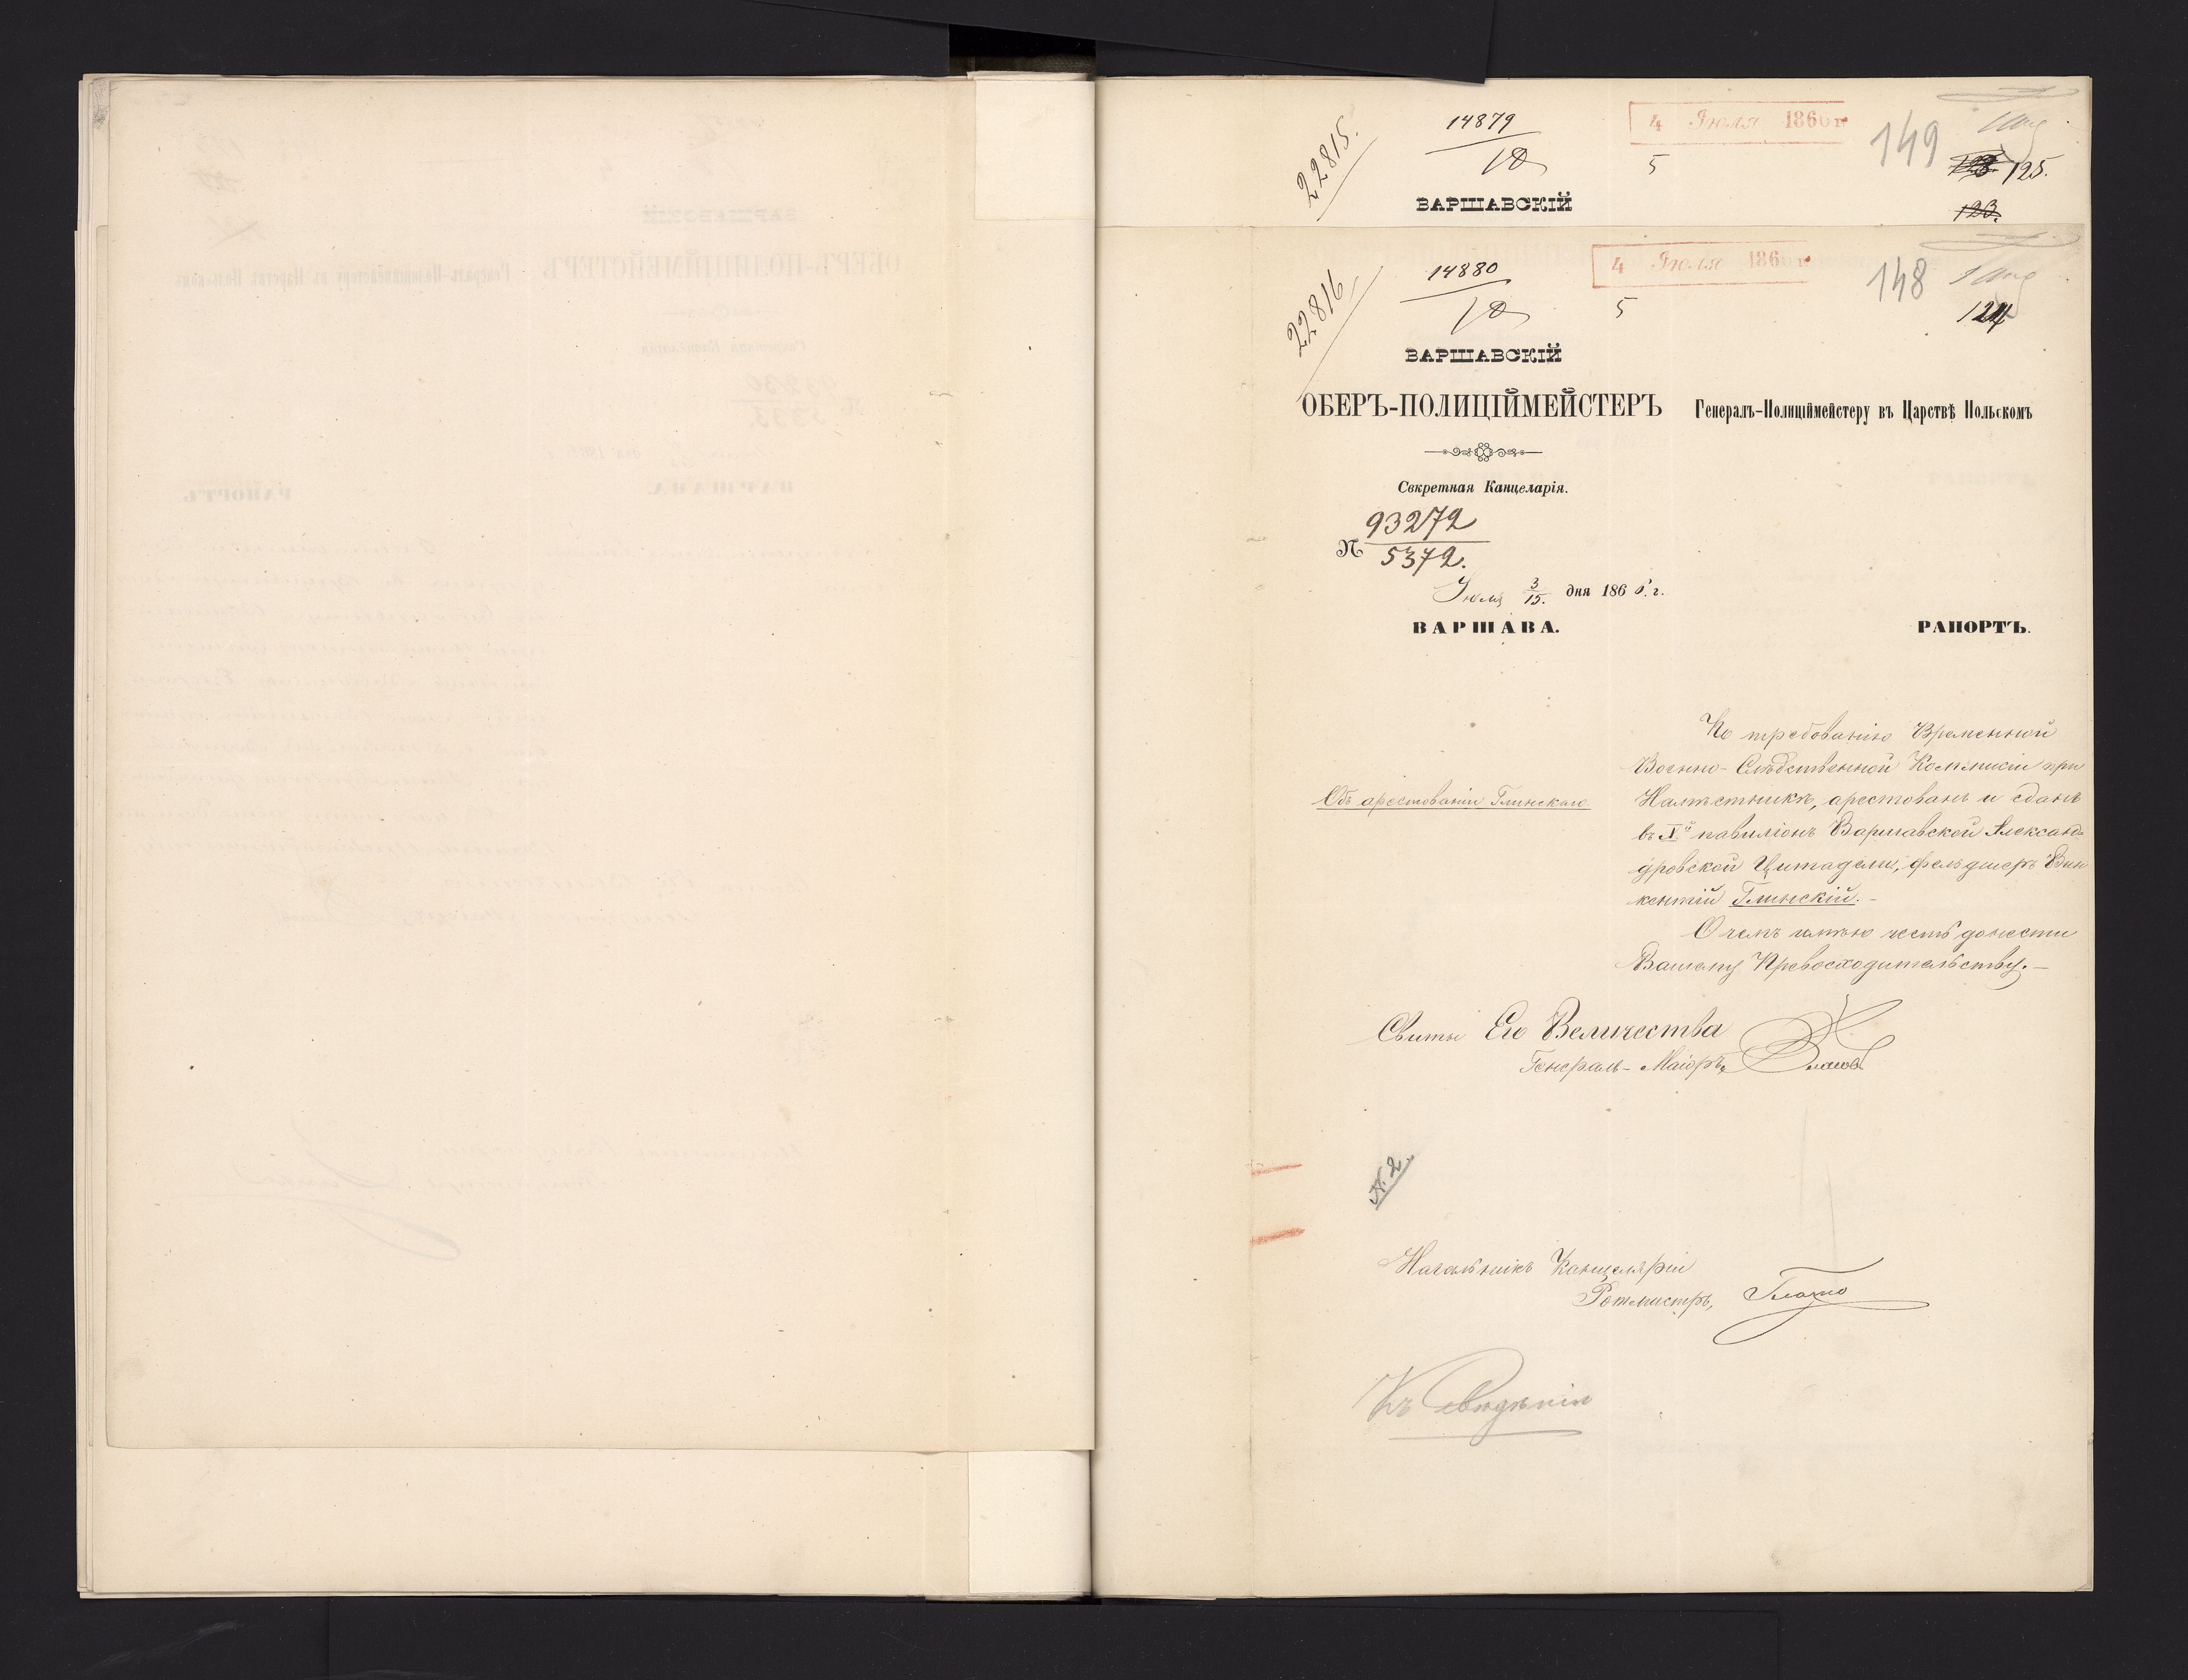 14879
4 Июля 1866 г.
149
22815.
5
125.
ВАРШАВСКІЙ
123.
14880
4 Июля 1866 г.
148
22816
5
124
ВАРШАВСКІЙ
ОБЕРЪ-ПОЛИЦІЙМЕЙСТЕРЪ
Генералъ-Полиціймейстеру въ Царствѣ Польскомъ
Секретная Канцеларія.
№ 93272
5372.
Июля 3/15. дня 1866 г.
ВАРШАВА.
РАПОРТЪ.
Объ арестованіи Глинскаго.
По требованію Временной
Военно-Слѣдственной Коммисіи при
Намѣстникѣ, арестованъ и сданъ
въ Xй павиліонъ Варшавской Александ-
дровской Цитадели, фельдшеръ Вин
кентій Глинскій.-
О чемъ имѣю честь донести
Вашему Превосходительству.-
Свиты Его Величества
Генералъ-Маіоръ,
№ 2.
Начальникъ Канцеляріи
Ротмистръ,
Къ свѣдѣнію